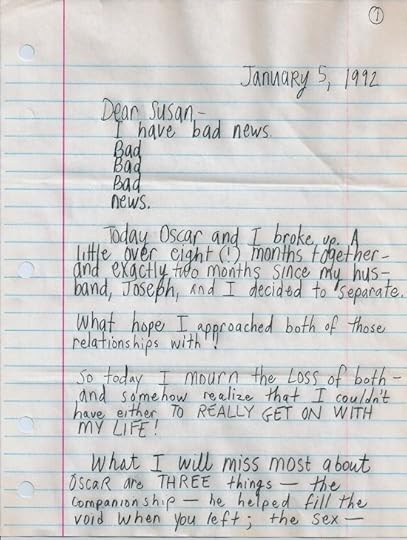 1
January 5, 1992
Dear Susan-
I have bad news.
Bad
Bad
Bad
news.
Today Oscar and I broke up. A
little over eight (!) months together-
and exactly two months since my hus-
band, Joseph, and I decided to separate.
What hope I approached both of those
relationships with!
So today I mourn the loss of both-
and somehow realize that I couldn't
have either TO REALLY GET ON WITH
MY LIFE!
What I will miss most about
Oscar are THREE things — the
companionship — he helped fill the
void when you left; the sex —